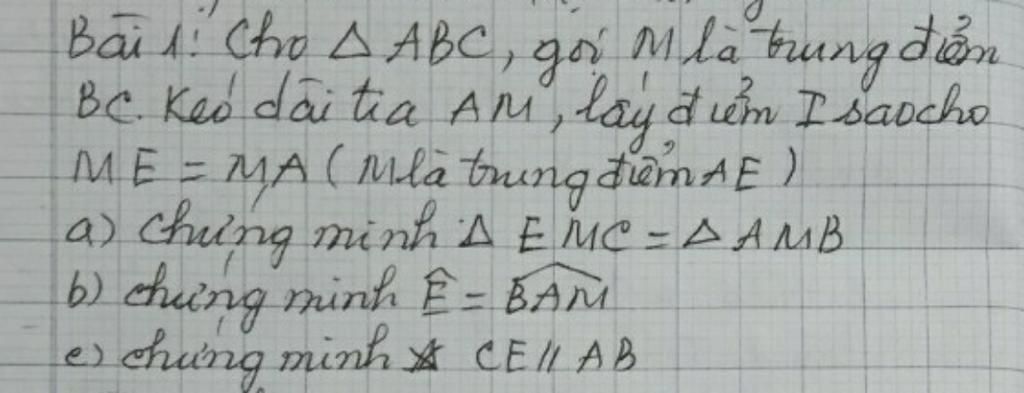 Bài 1: Cho △ ABC, gọi M là trung điểm
BC. Keó dài tia AM, lấy điểm I sao cho
ME = MA ( M là trung điểm AE )
a) Chứng minh △ EMC = △ AMB
b) chứng minh Ê = B̂AM
c) chứng minh CE // AB